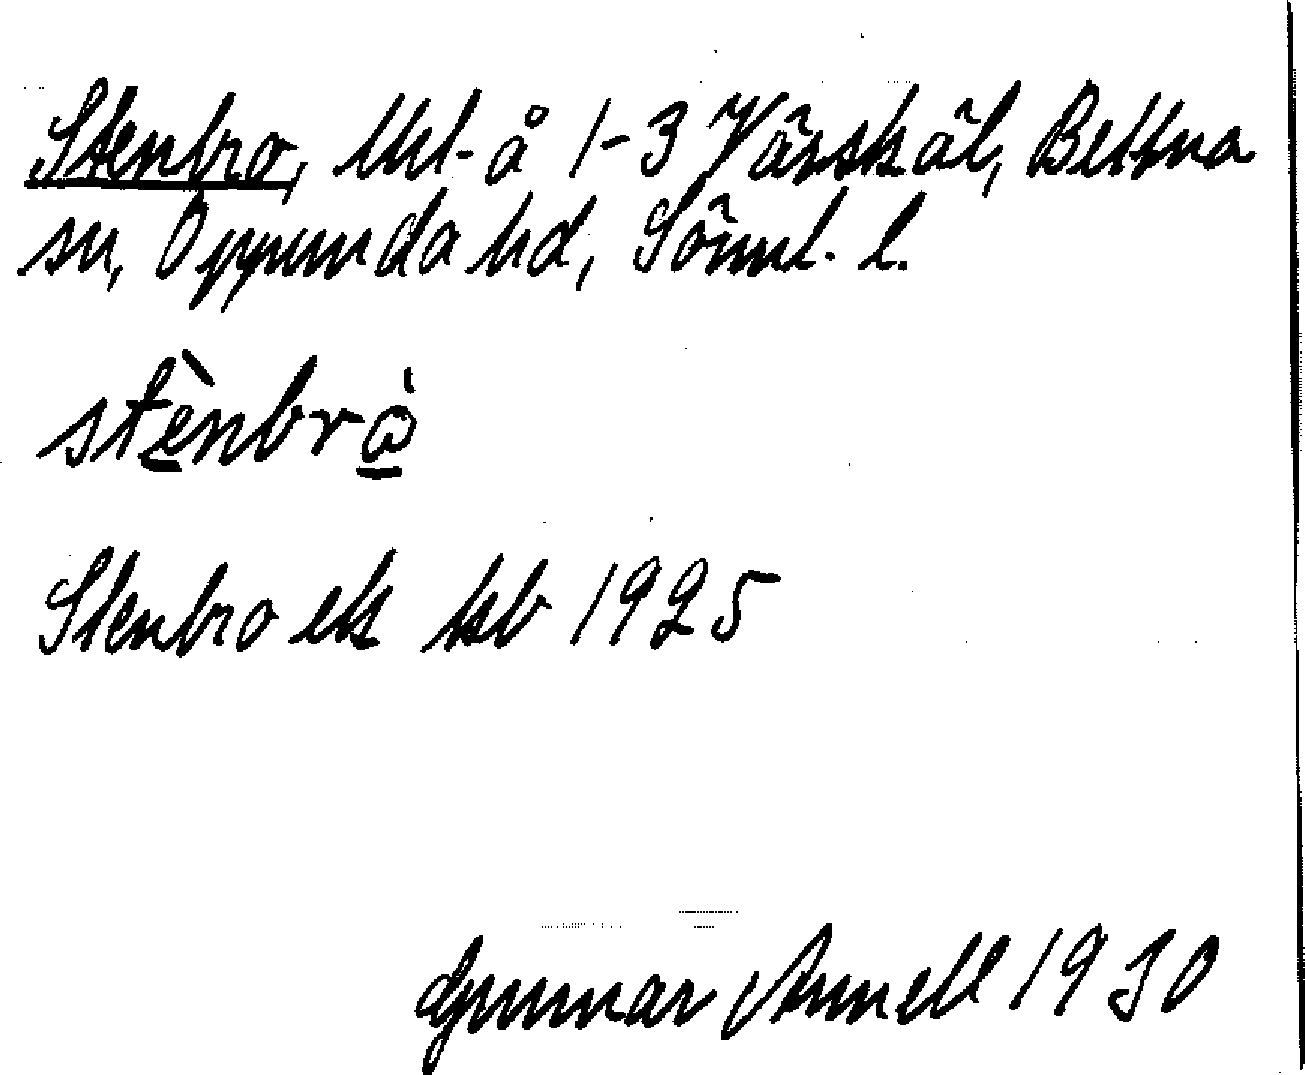 Stenbro, lht. å 1-3 Vårskäl, Bettna
sn, Oppunda hd, Söml. l.
stènbrò̱
Stenbro ek kb 1925
Gunnar Annell 1930